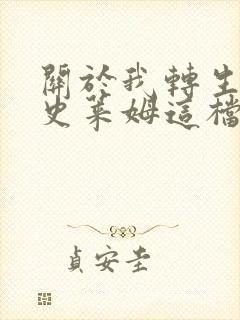 關於我轉生
史萊姆這檔
貞安圭